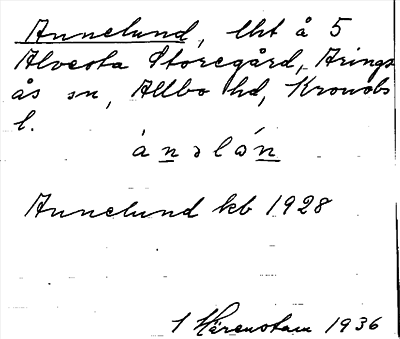 Annelund, lht å 5
Alvesta Storegård, Arings
ås sn, Allbo hd, Kronobs
l.
ànəlón
Annelund kb 1928
1 Härenstam 1936